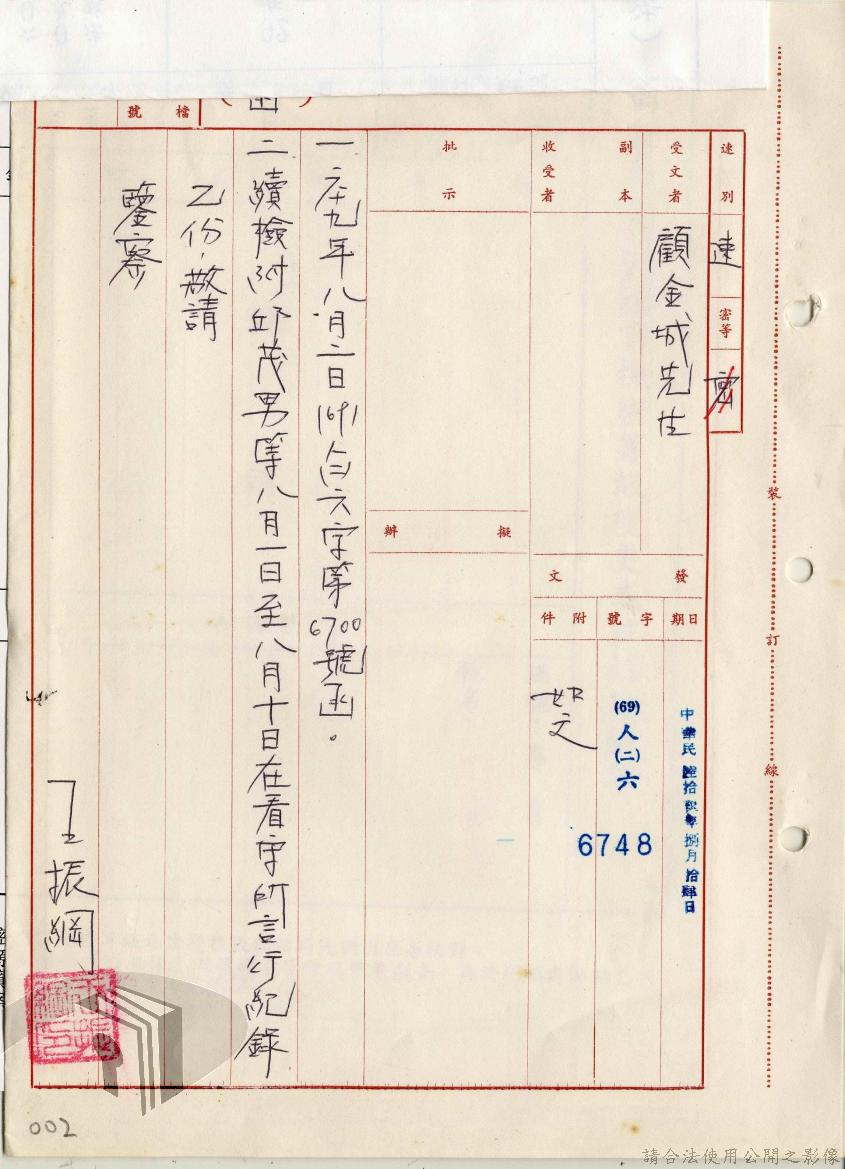 檔號
（函）
速別
速
密等
密
受文者
顧金城先生
副本收受者
批示
擬辦
發文
日期
中華民國陸拾玖年捌月拾肆日
字號
(69)人(二)六
6748
附件
如文
一、六十九年八月二日(69)人(二)六字第6700號函。
二、續檢附邱茂男等八月一日至八月十日在看守所言行紀錄
乙份,敬請
鑒察
王振綱
裝訂線
002
請合法使用公開之影像